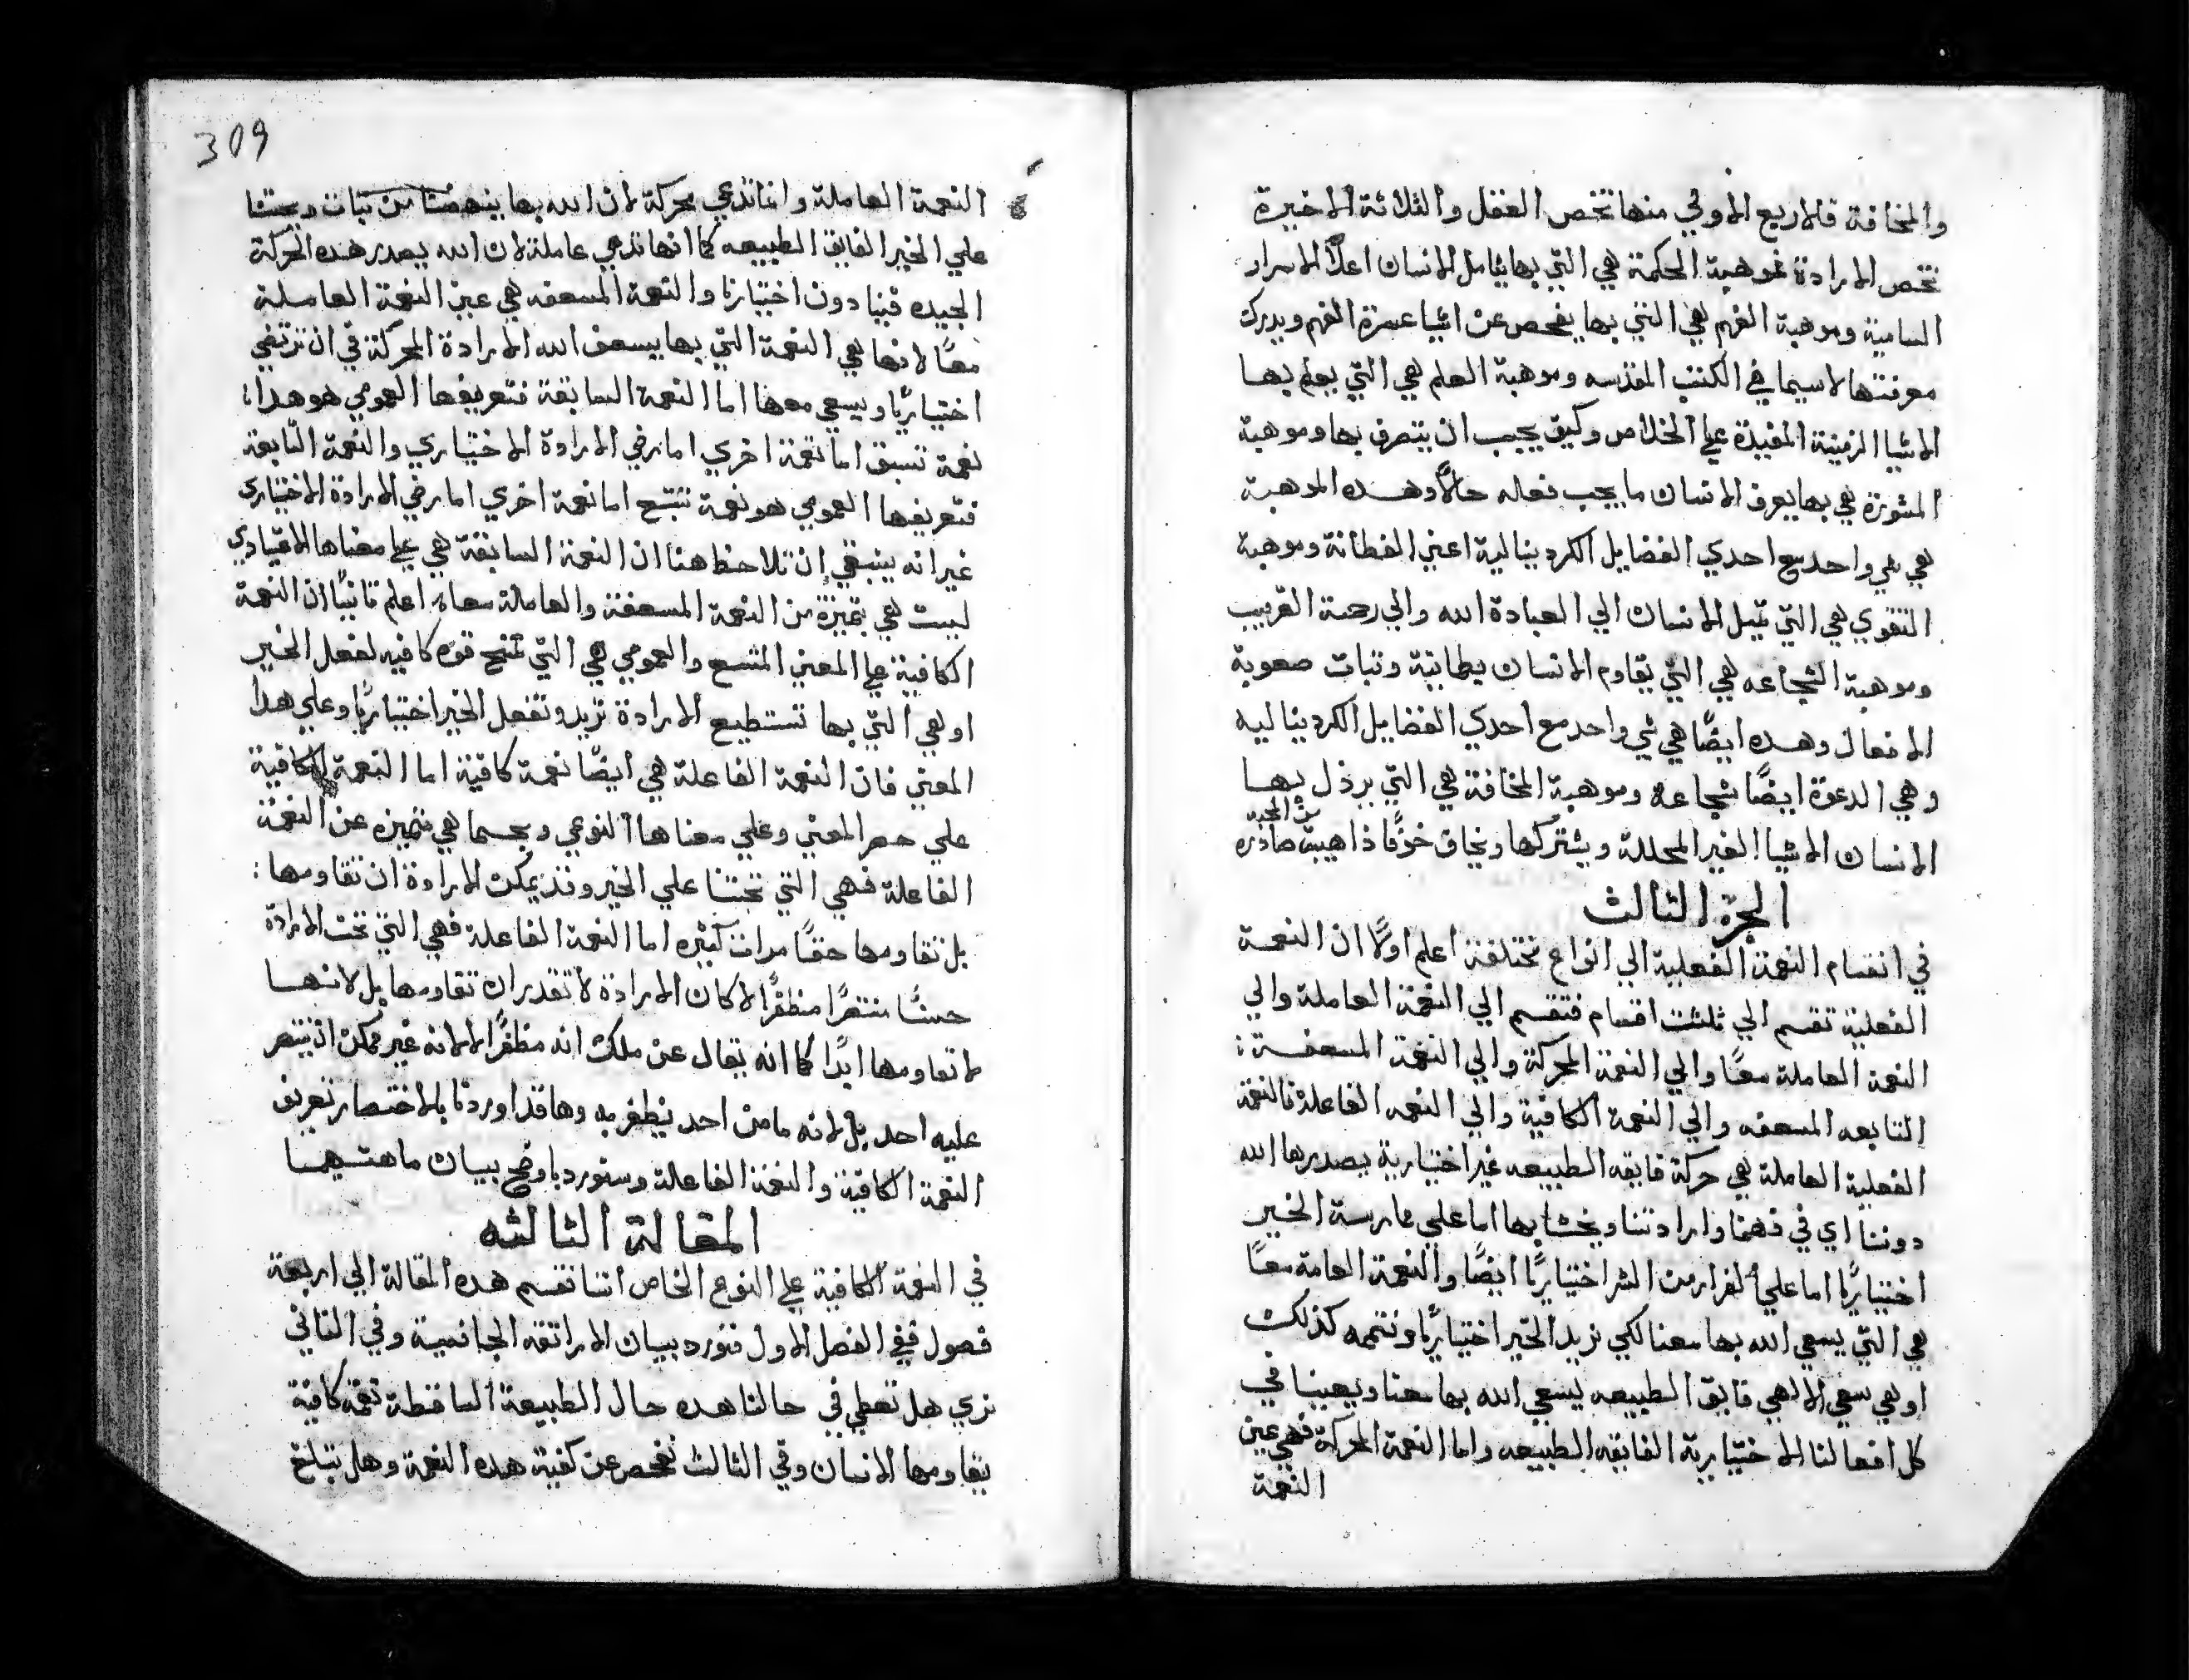 والمخافة فالاربع الاولي منها تخص العقل والثلاثة الاخيرة
تخص الارادة فموهبة الحكمة هي التي بها يتامل الانسان اعلا الاسرار
السامية وموهبة الفهم هي التي بها يفحص عن اشيا عسرة الفهم ويدرك
معرفتها لاسيما في الكتب المقدسه وموهبة العلم هي التي يعلم بها
الاشيا الزمنية المفيدة علي الخلاص وكيف يجب ان يتصرف بها وموهبة
المشورة هي بها يعرف الانسان ما يجب فعله حالاً وهذه الموهبة
هي شي واحد مع احدي الفضايل الكردينالية اعني الفطانة وموهبة
التقوي هي التي تميل الانسان الي العبادة الله والي رحمة القريب
وموهبة الشجاعه هي التي يقاوم الانسان بطمانينة وثبات صعوبة
الافعال وهذه ايضًا هي شي واحد مع احدي الفضايل الكردينا ليه
وهي المدعوة ايضًا شجاعة وموهبة المخافة هي التي يرذل بها
الانسان الاشيا الغير المحللة ويتركها ويخاف خوفًا ذا هيبة صادره
من المحبه
الجزء الثالث
في انقسام النعمة الفعلية الي انواع مختلفة اعلم اولاً ان النعمة
الفعلية تقسم الي ثلثت اقسام فتقسم الي النعمة العاملة والي
النعمة العاملة معًا والي النعمة المحركة والي النعمة المسعفة :
التابعه المسعفه والي النعمة الكافية والي النعمه الفاعلة فالنعمة
الفعلية العاملة هي حركة فايقه الطبيعه غير اختيارية يصدرها الله
دوننا اي في ذهننا وارادتنا ويحثنا بها اما علي ممارسة الخير
اختياريًا اما علي الفرار من الشر اختياريًا ايضًا والنعمة العامة معًا
هي التي يسعي الله بها معنا لكي نريد الخير اختياريًا ونتممه كذلك
او هي سعي الالهي فايق الطبيعه يسعي الله بها معنا ويعيننا في
كل افعالنا الاختيارية الفايقه الطبيعه واما النعمة المحركة فهي عين
النعمة
309
النعمة العاملة وانما تدعي محركة لان الله بها ينهضنا من ثبات ويحثنا
علي الخير الفايق الطبيعه كما انها تدعي عاملة لان الله يصدر هذه الحركة
الجيده فينا دون اختيارنا والنعمة المسعفه هي عين النعمة العاملة
معًا لانها هي النعمة التي بها يسعف الله الارادة المحركة في ان ترتضي
اختياريًا ويسعي معها اما النعمة السابقة فتعريفها العمومي هو هذا :
نعمة تسبق اما نعمة اخري اما رضي الارادة الاختياري والنعمة التابعة
فتعريفها العمومي هو نعمة تتبع اما نعمة اخري اما رضي الارادة الاختياري
غير انه ينبغي ان تلاحظ هنا ان النعمة السابقة هي علي معناها الاعتيادي
ليست هي بتميزة من النعمة المسعفة والعاملة معا اعلم ثانيًا ان النعمة
الكافية علي المعني المتسع والعمومي هي التي تمنح قوة كافيه لفعل الخير
او هي التي بها تستطيع الارادة تريد وتفعل الخير اختياريًا وعلي هذا
المعني فان النعمة الفاعلة هي ايضًا نعمة كافية اما النعمة الكافية
علي حصر المعني وعلي معناها النوعي وبحسبما هي متميزه عن النعمة
الفاعلة فهي التي تحثنا علي الخير وقد يمكن الارادة ان تقاومها :
بل تقاومها حقًا مرات كثيره اما النعمة الفاعلة فهي التي تحث الارادة
حثًا منتصرًا مظفرًا لا كان الارادة لا تقدر ان تقاومها بل لانها
لا تقاومها ابدًا كما انه يقال عن ملك انه مظفرًا لا لانه غير ممكن ان ينتصر
عليه احد بل لانه ما من احد يظفر به وها قد اوردنا بالاختصار تعريف
النعمة الكافية والنعمة الفاعلة وسنورد باوضح بيان ماهيتهما
المقالة الثالثه
في النعمة الكافية علي النوع الخاص اننا نقسم هذه المقالة الي اربعة
فصول ففي الفصل الاول نورد بيان الاراتقه الجانسية وفي الثاني
نري هل تعطي في حالتنا هذه حال الطبيعة الساقطة نعمة كافية
يقاومها الانسان وفي الثالث نفحص عن كفية هذه النعمة وهل تبلغ